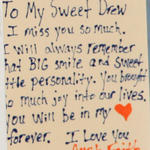 To My Sweet Drew
I miss you so much.
I will always remember
that BIG smile and sweet
little personality. You brought
so much joy into our lives.
You will be in my
forever. I Love You